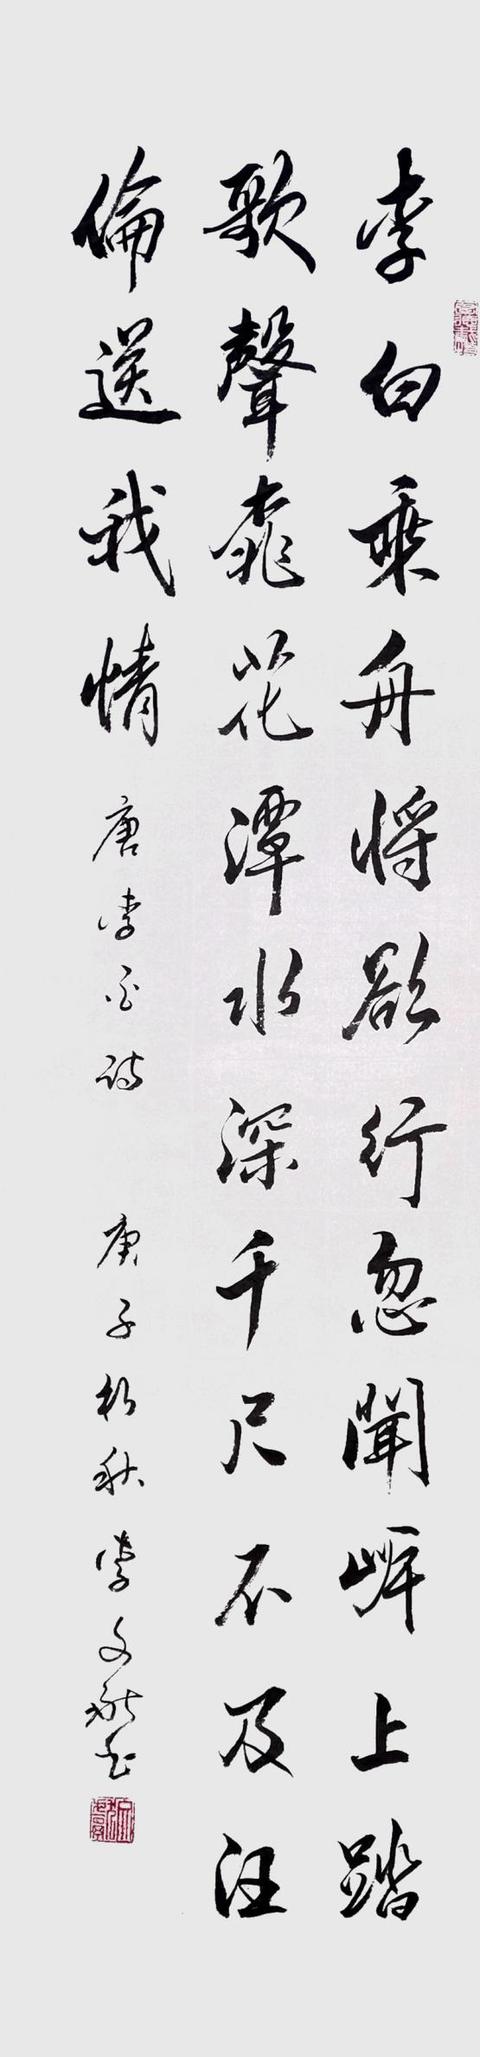 李白乘舟將欲行忽聞岸上踏
歌聲桃花潭水深千尺不及汪
倫送我情
唐李白詩 庚子初秋 李文書